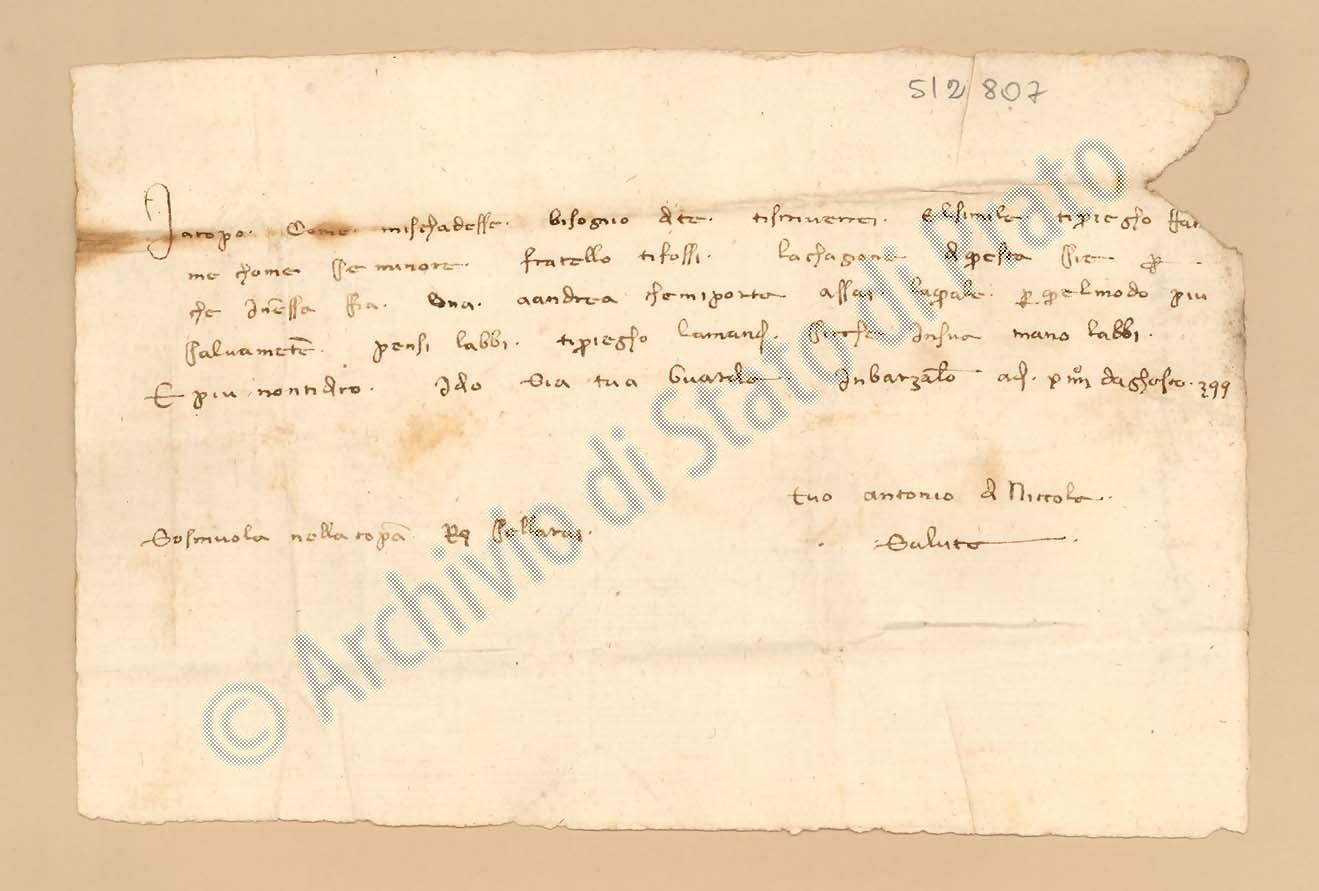 512 807
Jacopo. Come mischadesse. bisogno d te. tiscriverrei. El simile ti priegho
me chome se minore. fratello ti fossi. la chagone d questa sie p
che Inessa fia. Una. aandrea che mi porta assai laquale. p. quel modo piu
salvamete. pensi labbi. ti priegho la mandi. sicche In sua mano labbi.
E piu non ti dico. Idio Sia tua Guardia In barzalo adi xiiii daghosto. 399
tuo antonio d Niccola.
Soscrivola nella copa. sellarai.
Salute
© Archivio di Stato di Prato